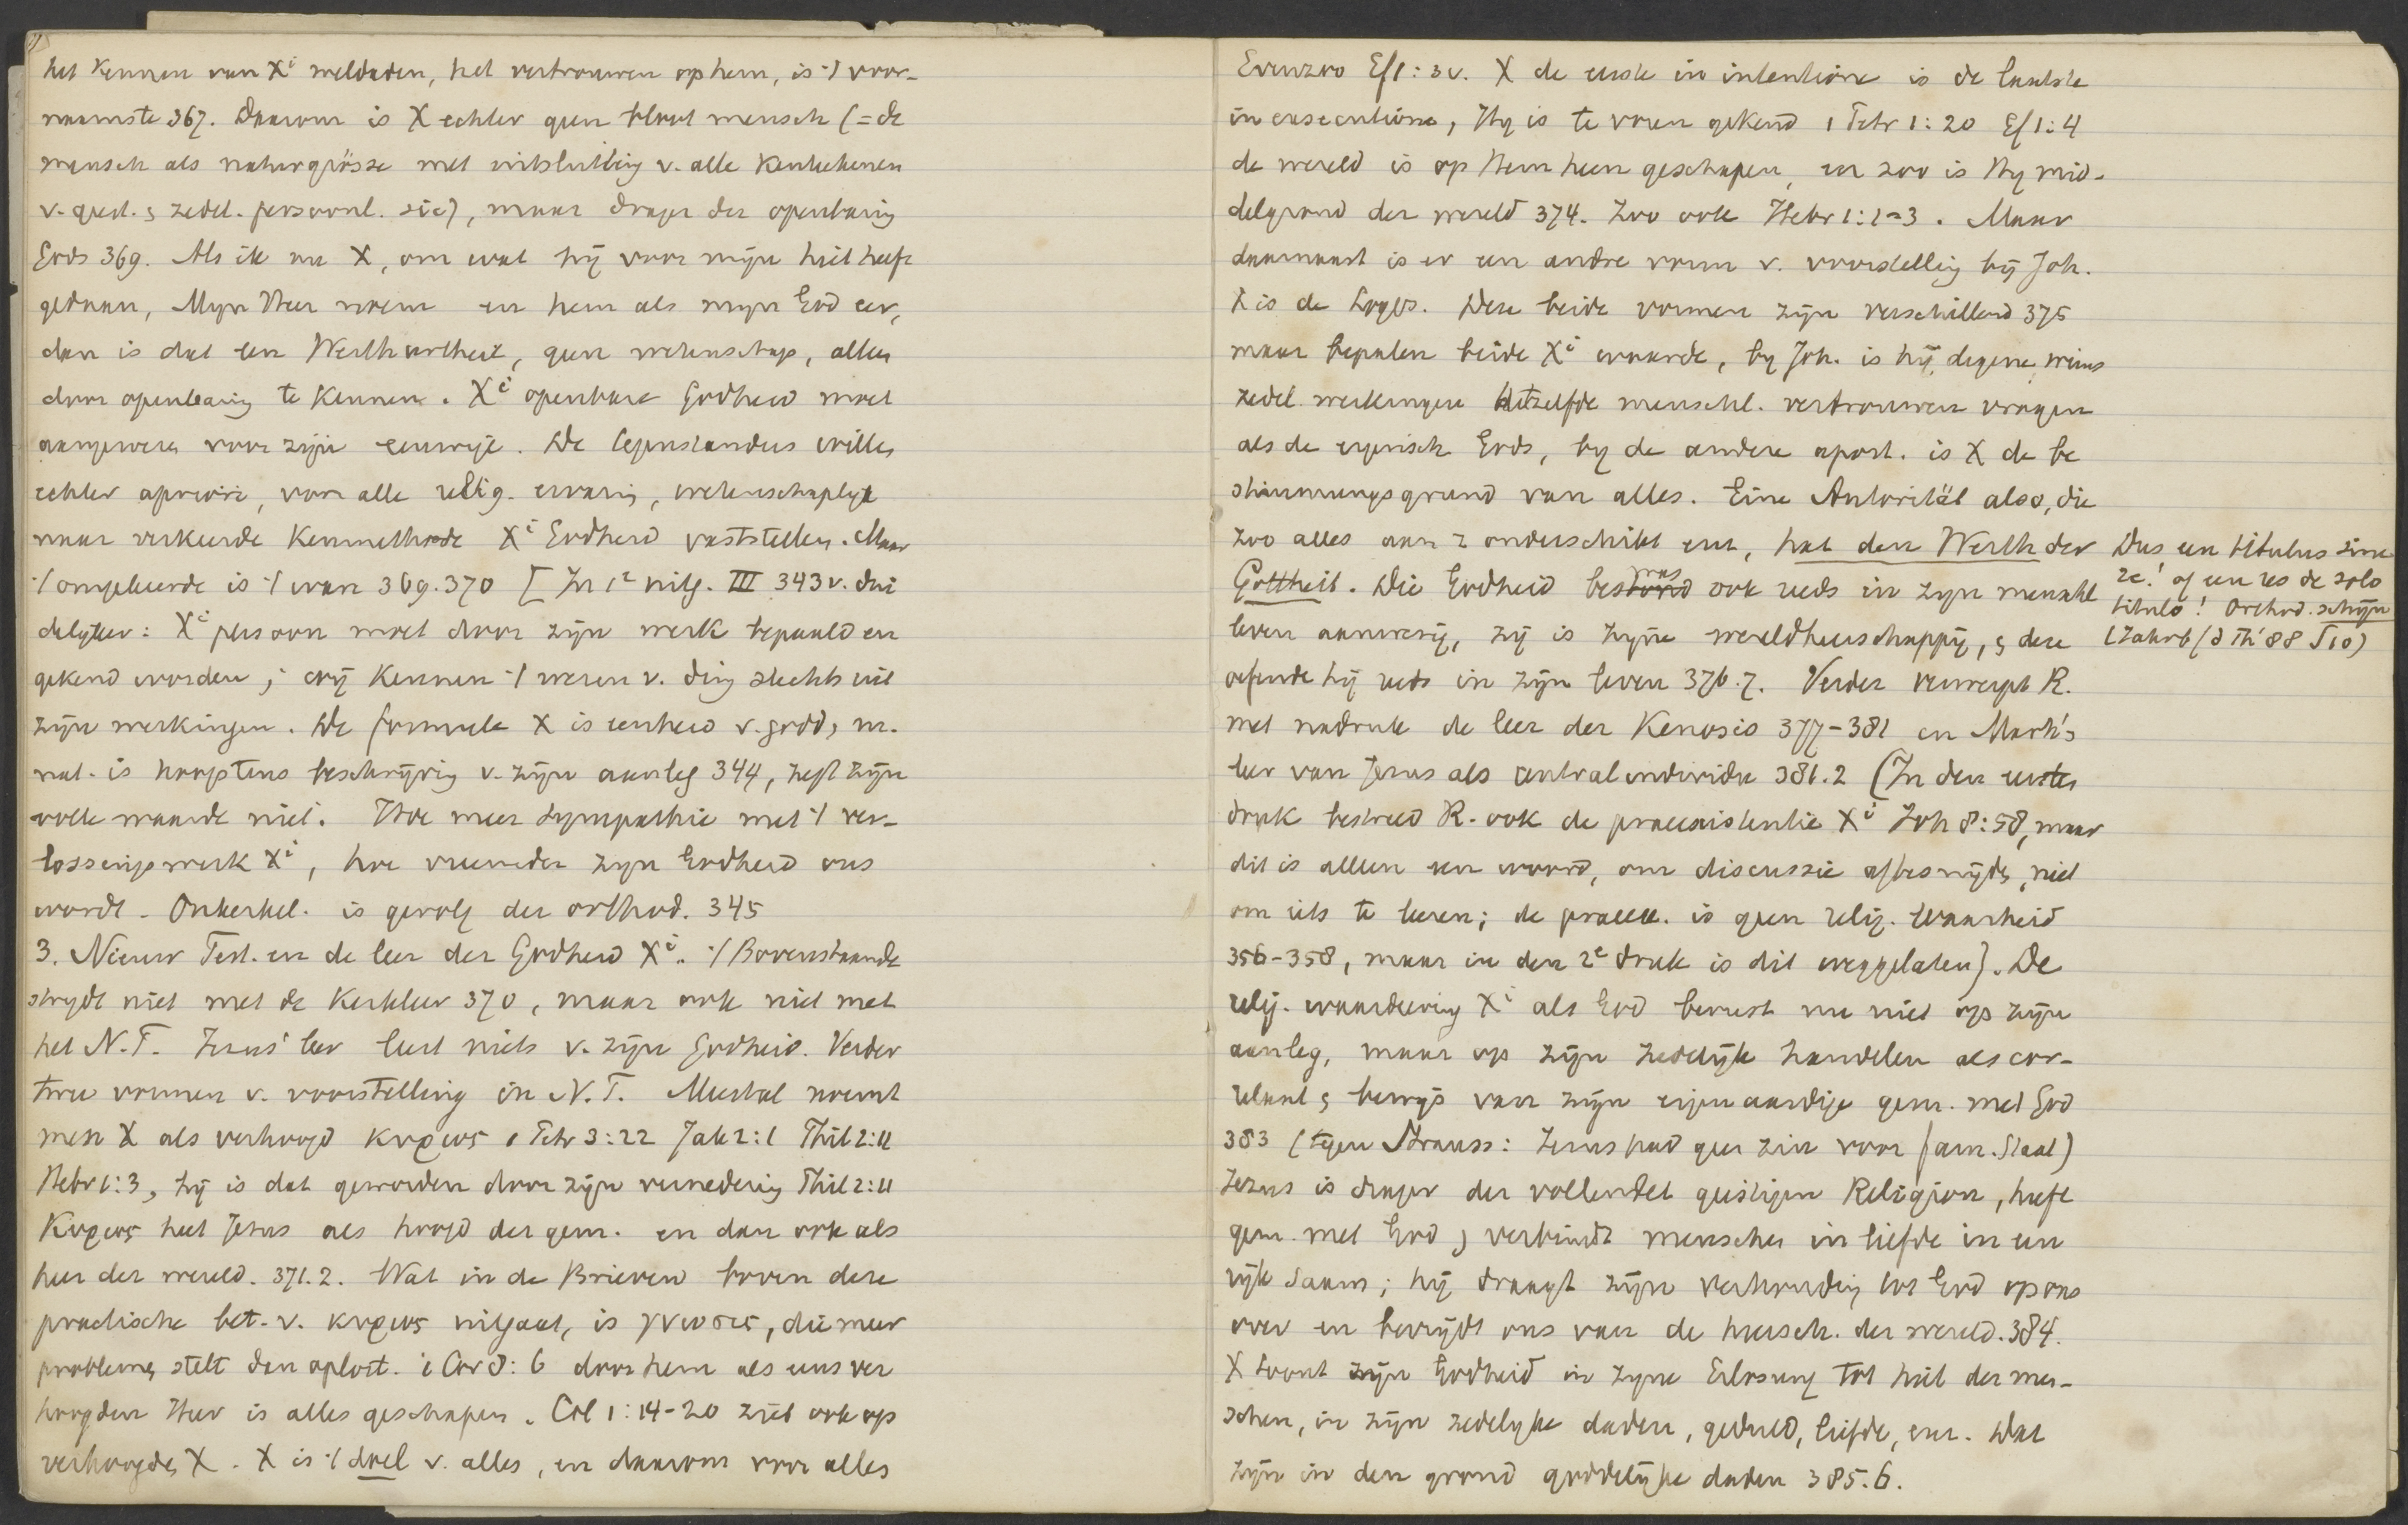 het kennen van Xi weldaden, het vertrouwen op hem, is ·/ voor-
naamste 367. Daarom is X echter geen bloot mensch (= de
mensch als naturgrösse met uitsluiting v. alle kenteekenen
v. geest. & zedel. persoonl. sic), maar drager der openbaring
Gods 369. Als ik nu X, om wat hij voor mijn heil heeft
gedaan, Mijn Heer noem en hem als mijn God eer,
dan is dat een Werthurtheil, geen wetenschap, alleen
door openbaring te kennen. Xi openbare Godheid moet
aangewezen voor zijn eeuwige. De tegenstanders willen
echter apriori, voor alle relig. ervaring, wetenschaplijk
naar verkeerde Kenmethode Xi Godheid vaststellen. Maar
·/ omgekeerde is ·/ waar 369.370 [In 1e uitg. III 343 v. dui
delijker: Xi persoon moet door zijn werk bepaald en
gekend worden; wij kennen ·/ wezen v. ding slechts uit
zijn werkingen. De formule X is eenheid v. godd, m.
nat. is hoogstens beschrijving v. zijn aanleg 344, zegt zijn
volle waarde niet. Hoe meer sympathie met ·/ ver-
lossingswerk Xi, hoe vreemder zijn Godheid ons
wordt. Onkerkel. is gevolg der orthod. 345
3. Nieuw Test. en de leer der Godheid Xi. ·/ Bovenstaande
strijdt niet met de Kerkleer 370, maar ook niet met
het N.T. Jezus' leer leert niets v. zijn Godheid. Verder
twee vormen v. voorstelling in N.T. Meestal noemt
men X als verhoogd κυριος 1 Petr 3:22 Jak 2:1 Phil 2:11
Hebr 1:3, hij is dat geworden door zijn vernedering Phil 2:11
Κυριος heet Jezus als hoofd der gem. en dan ook als
heer der wereld. 371.2. Wat in de Brieven boven deze
practische bet. v. κυριος uitgaat, is γνωσις, die meer
problemen stelt dan oplost. 1 Cor 8:6 door hem als ons ver
hoogden Heer is alles geschapen. Col 1:14-20 ziet ook op
verhoogden X. X is ·/ doel v. alles, en daarom voor alles
Evenzoo Ef 1:3 v. X de eerste in intentione is de laatste
in executione, Hij is te voren gekend 1 Petr 1:20 Ef 1:4
de wereld is op Hem heen geschapen, en zoo is Hij mid-
delgrond der wereld 374. Zoo ook Hebr 1:1-3. Maar
daarnaast is er een andre vorm v. voorstelling bij Joh.
X is de Logos. Deze beide vormen zijn verschillend 375
maar bepalen beide Xi waarde, bij Joh. is hij degene, wiens
zedel. werkingen hetzelfde menschl. vertrouwen vragen
als de eigensch. Gods, bij de andere apost. is X de be
stimmungsgrund van alles. Eine Autorität also, die
zoo alles aan z onderschikt enz, hat den Werth der
Gottheit. Die Godheid bestond was ook reeds in zijn menschl
leven aanwezig, zij is zijne wereldheerschappij, & deze
oefende hij reeds in zijn leven 376.7. Verder verwerpt R.
met nadruk de leer der Kenosis 377-381 en Mart's
leer van Jezus als centralindividu 381.2 (In den eersten
druk bestreed R. ook de praeexistentie Xi Joh 8:58, maar
dit is alleen een woord, om discussie aftesnijden, niet
om iets te leeren; de praeex. is geen relig. waarheid
356-358, maar in den 2e druk is dit weggelaten). De
relig. waardeering Xi als God berust nu niet op zijn
aanleg, maar op zijn zedelijk handelen als cor-
relaat & bewijs van zijn eigenaardige gem. met God
383 (tegen Strauss: Jezus had geen zin voor fam. Staat)
Jezus is drager der vollendet geistigen Religion, heeft
gem. met God & verbindt menschen in liefde in een
rijk saam; hij draagt zijn verhouding tot God op ons
over en bevrijdt ons van de heersch. der wereld. 384.
X toont zijn Godheid in zijne Erlösung tot heil der men-
schen, in zijn zedelijke daden, geduld, liefde, enz. Dat
zijn in den grond goddelijke daden 385.6.
Dus een titulus sine
re! of een res de solo
titulo! Orthod. schijn
(Jahrb f d Th '88 S 10)